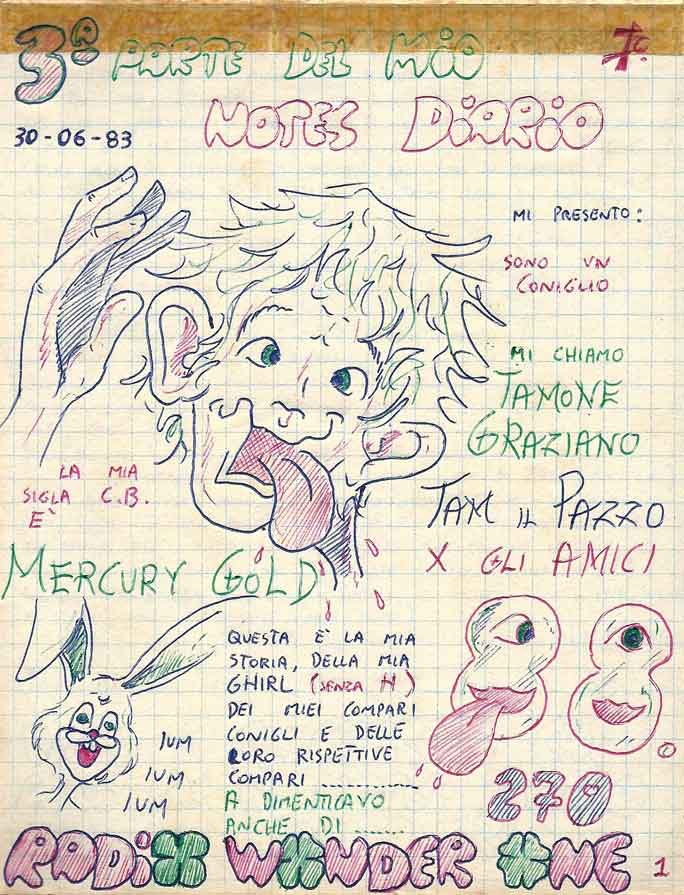 3ª PARTE DEL MIO
NOTES DIARIO
30-06-83
MI PRESENTO:
SONO UN
CONIGLIO
MI CHIAMO
TAMONE
GRAZIANO
TAM IL PAZZO
X GLI AMICI
LA MIA
SIGLA C.B.
E'
MERCURY GOLD
QUESTA È LA MIA
STORIA, DELLA MIA
GHIRL (SENZA H)
DEI MIEI COMPARI
CONIGLI E DELLE
LORO RISPETTIVE
COMPARI ............
A DIMENTICAVO
ANCHE DI ......
IUM
IUM
IUM
88
©
270
RADIO WONDER ONE
1